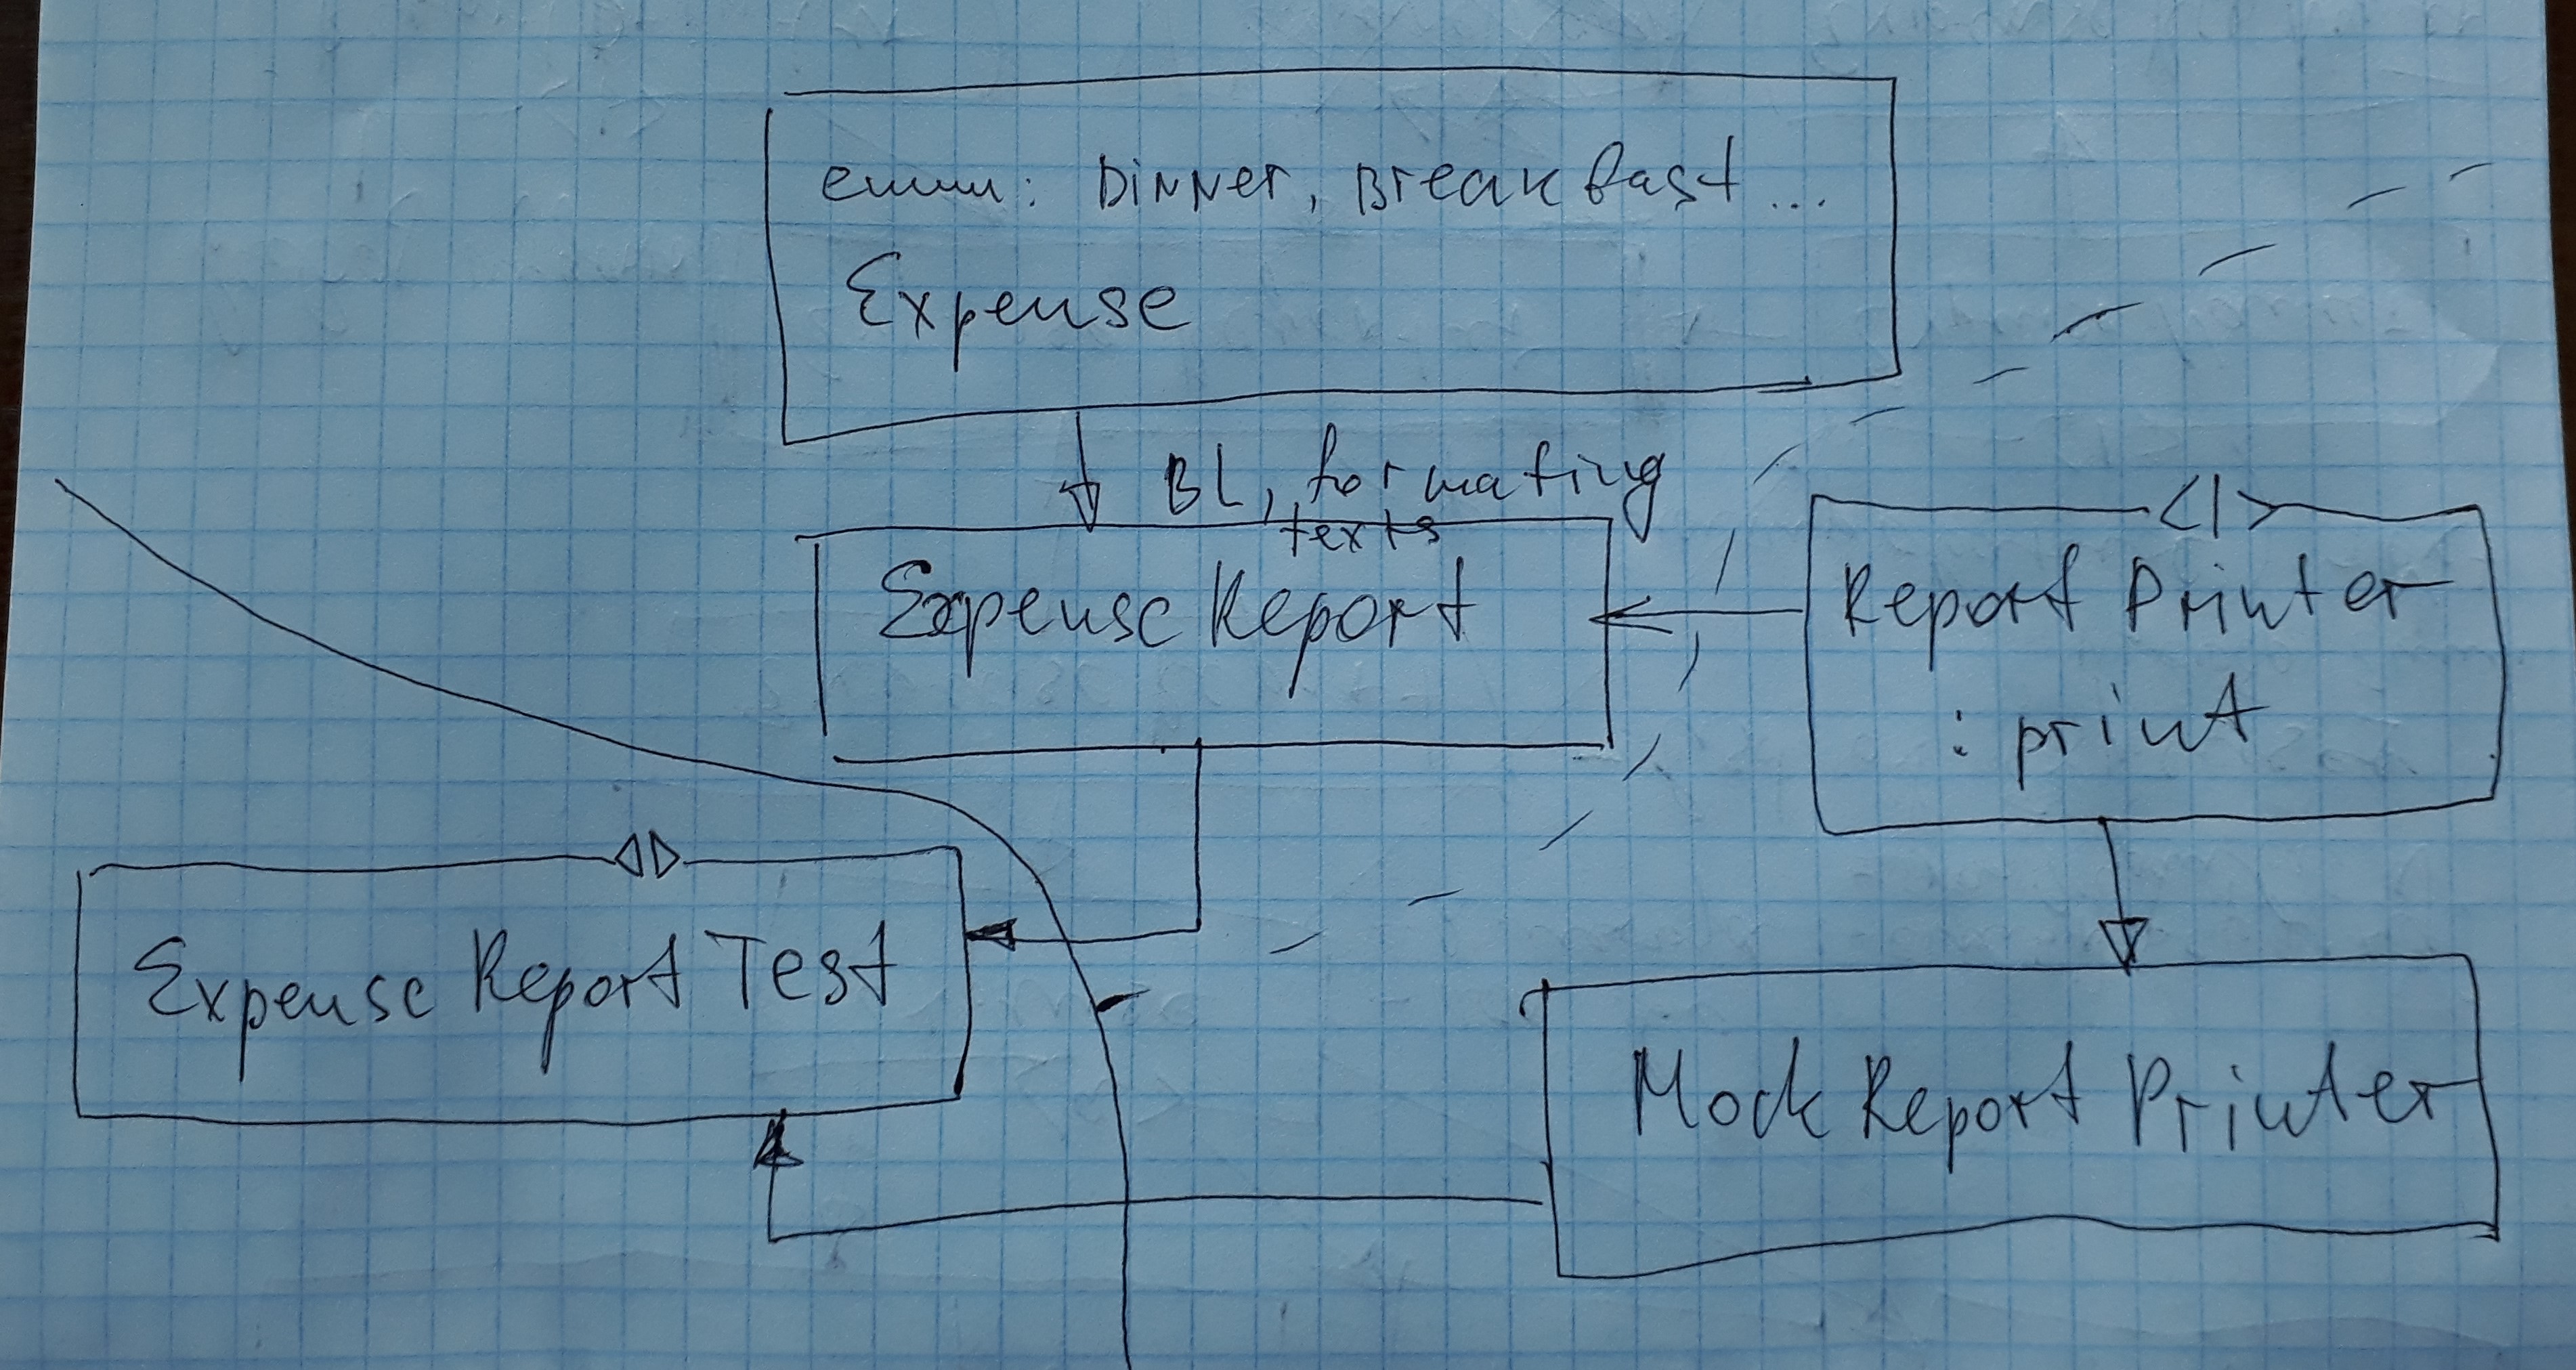 enum: Dinner, Breakfast...
Expense
BL, formating
texts
Expense Report
<I>
Report Printer
: print
Expense Report Test
Mock Report Printer